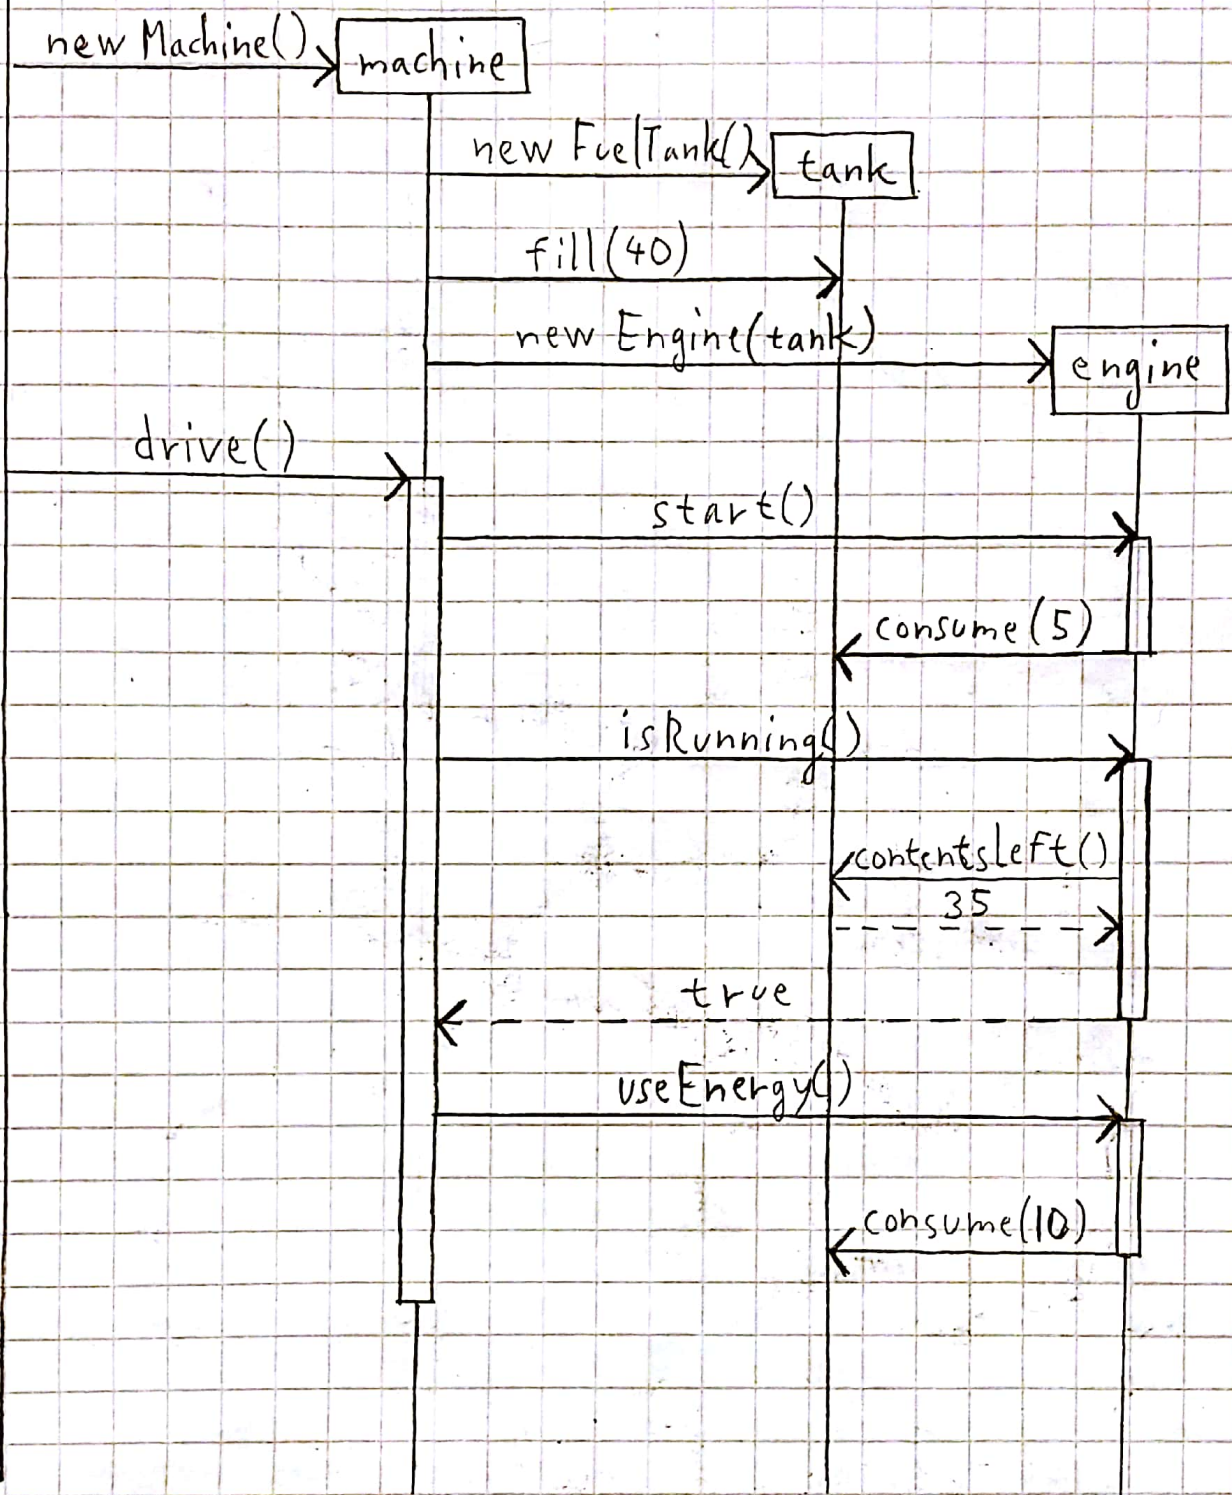 new Machine()
machine
new FuelTank()
tank
fill(40)
new Engine(tank)
engine
drive()
start()
consume(5)
isRunning()
contentsLeft()
35
true
useEnergy()
consume(10)